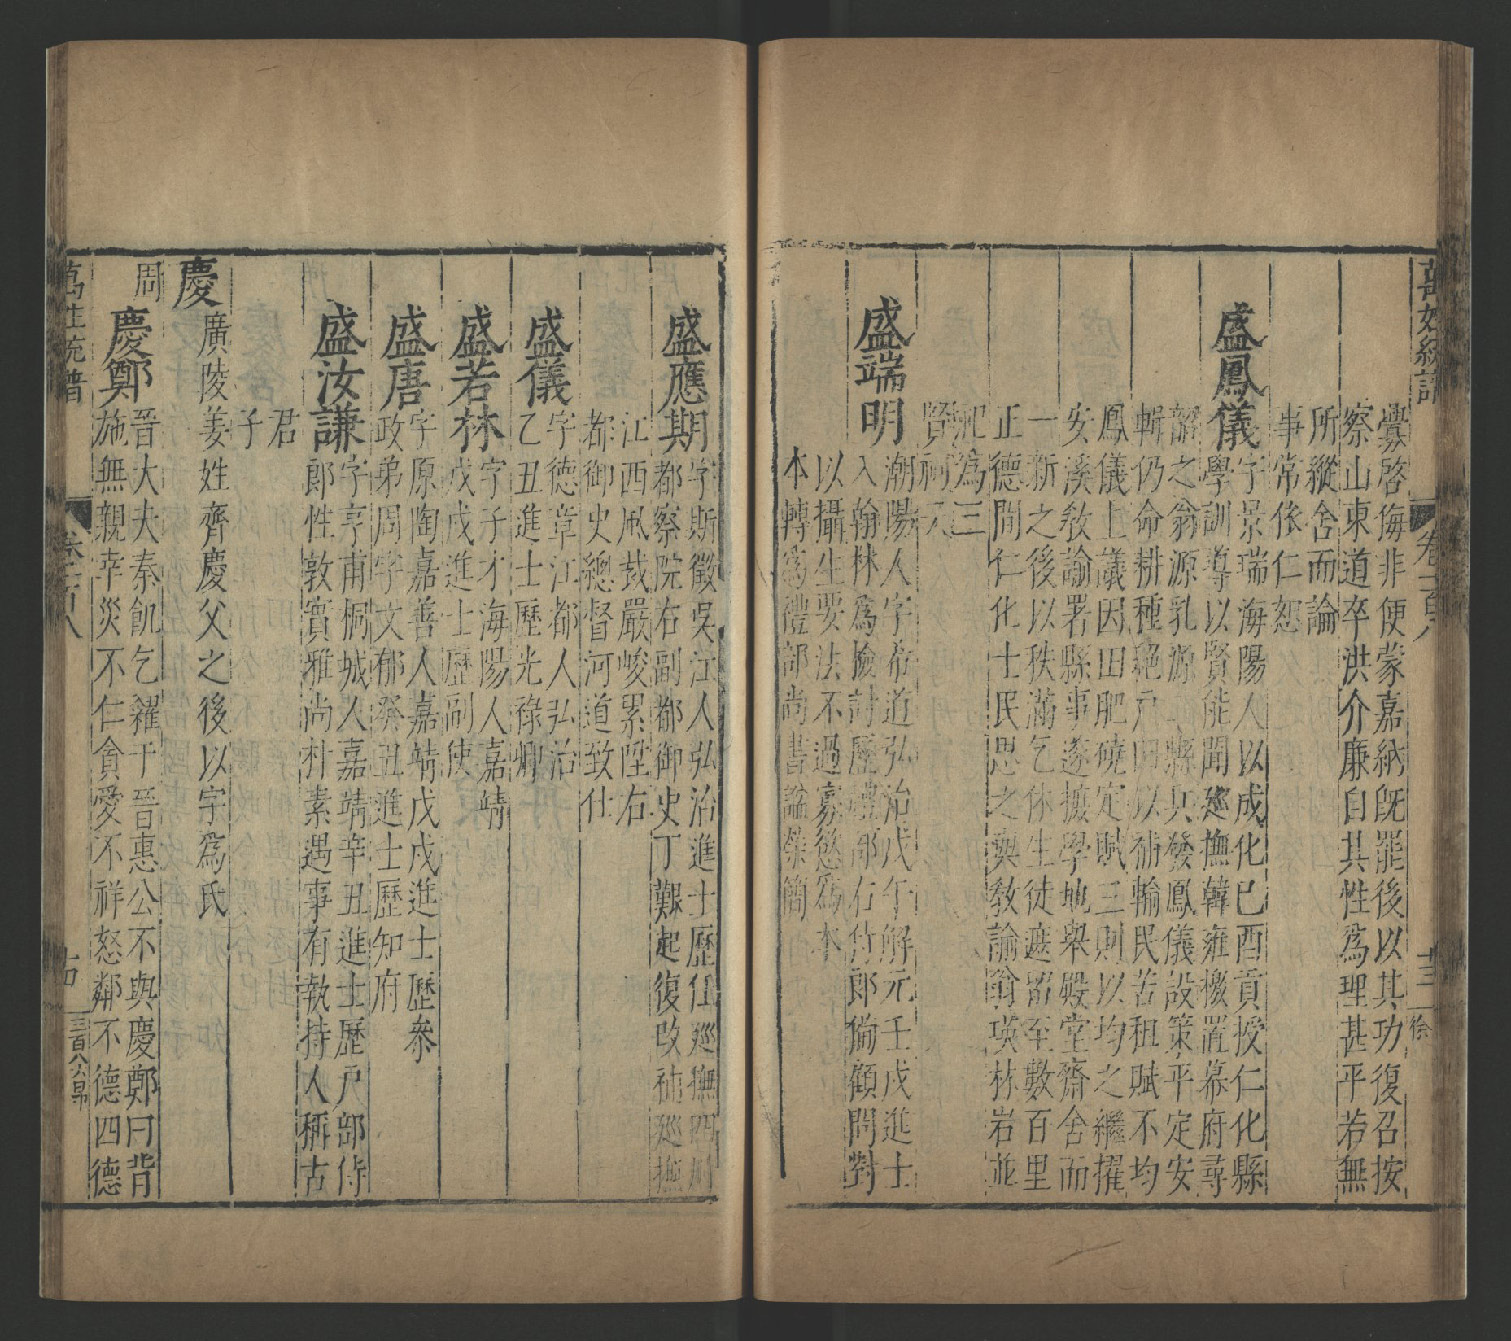 萬姓統譜
卷一百八
十三
徐
釁啓侮非便蒙嘉納旣罷後以其功復召按
察山東道卒洪介廉自其性爲理甚平若無
所縱舍而論
事常依仁恕
盛鳳儀
字景瑞海陽人以成化已酉貢授仁化縣
學訓導以賢能聞廵撫韓雍檄置幕府尋
韶之翁源乳源二縣兵發鳳儀設策平定安
輯仍命耕種絕戶田以補輸民苦租賦不均
鳳儀上議因田肥磽定賦三則以均之繼擢
安溪敎諭署縣事逐摭學地舉殿堂齋舍而
一新之後以秩滿乞休生徒遮留至數百里
正德間仁化士民思之與敎諭翁瑛林岩並
祀爲三
賢祠
盛端明
潮陽人字希道弘治戊午解元壬戌進士
入翰林爲檢討歷禮部右侍郎備顧問對
以攝生要法不過寡慾爲本
本轉爲禮部尚書謚榮簡
盛應期
字斯徵吳江人弘治進士歷仕廵撫四川
都察院右副都御史丁艱起復改補廵撫
江西風裁嚴峻累陞右
都御史總督河道致仕
盛儀
字德章江都人弘治
乙丑進士歷光祿卿
盛若林
字子才海陽人嘉靖
戊戌進士歷副使
盛唐
字原陶嘉善人嘉靖戊戌進士歷參
政弟周字文郁癸丑進士歷知府
盛汝謙
字亨甫桐城人嘉靖辛丑進士歷戶部侍
郎性敦實雅尚朴素遇事有執持人稱古
君
子
慶
廣陵姜姓齊慶父之後以字爲氏
周
慶鄭
晉大夫秦飢乞糴于晉惠公不與慶鄭曰背
施無親幸災不仁貪愛不祥怒鄰不德四德
萬姓統譜
卷一百八
十四
三百八六早